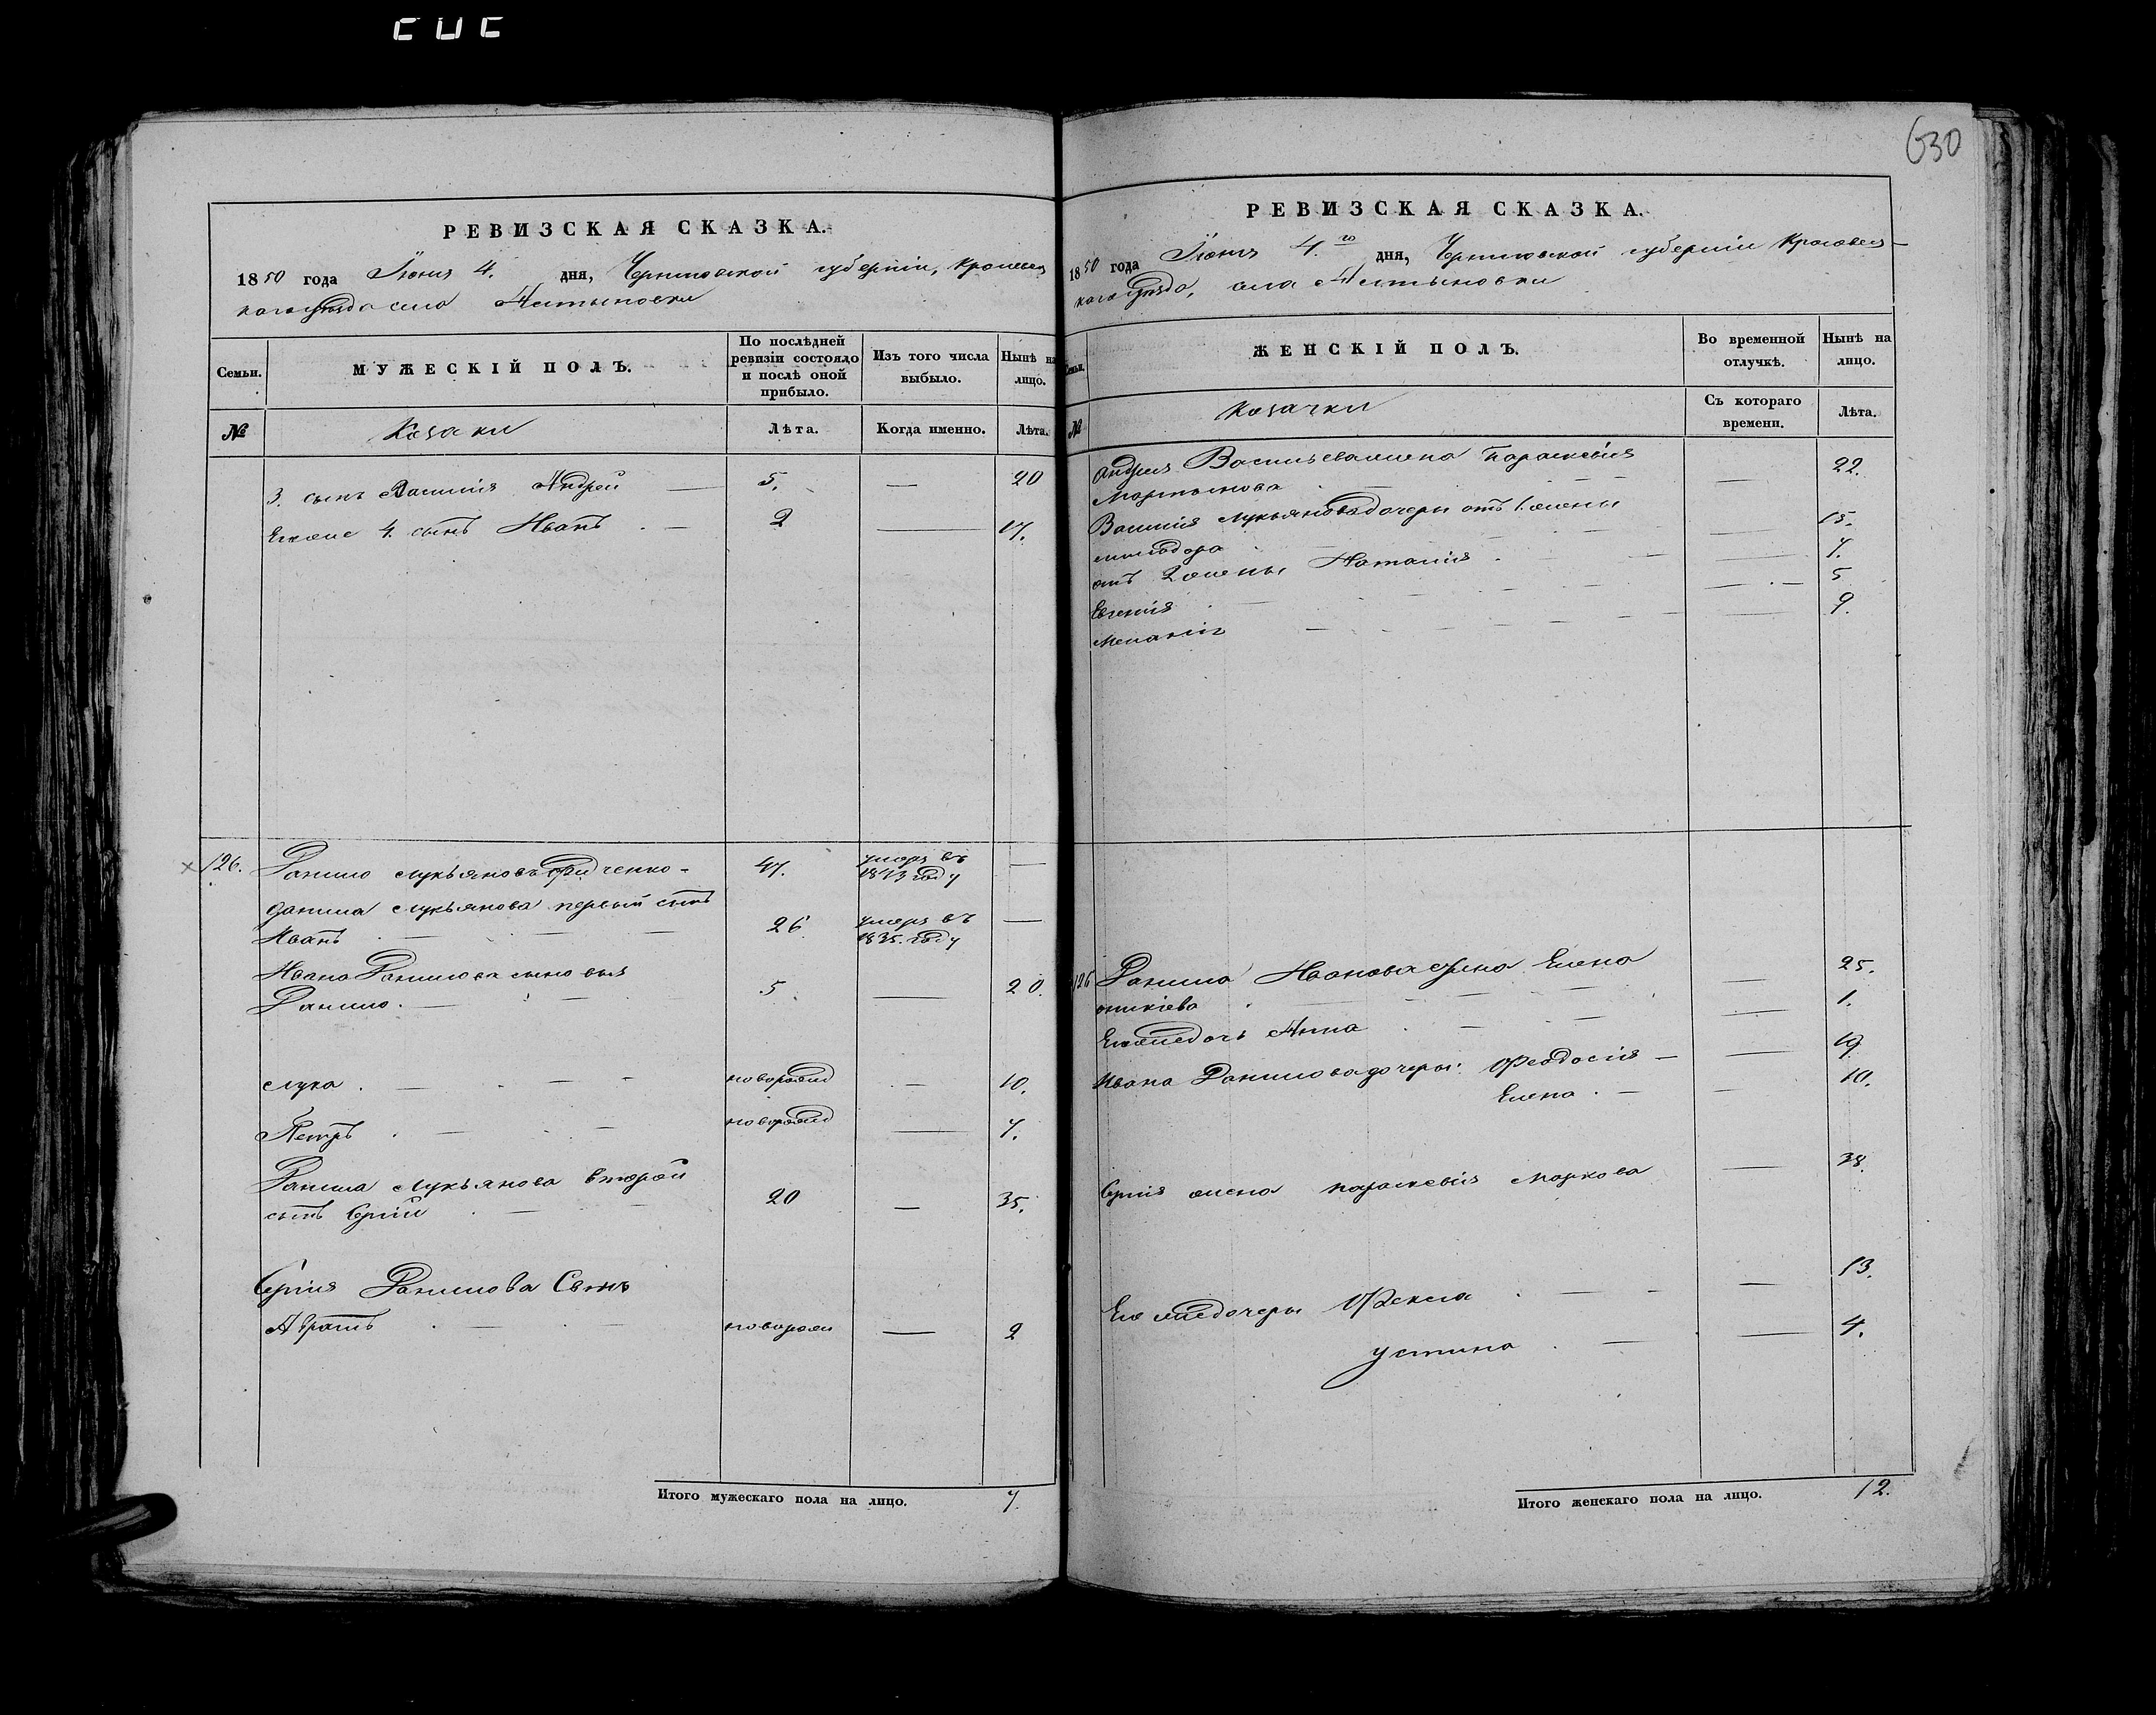 630
РЕВИЗСКАЯ СКАЗКА.
1850 года Іюня 4. дня, Черниговской губерніи, Кролевец
каго уѣзда села Алтыновки
Семьи. МУЖЕСКІЙ ПОЛЪ. По послѣдней ревизіи состояло и послѣ оной прибыло. Изъ того числа выбыло. Нынѣ на лицо.
№ Козаки Лѣта. Когда именно. Лѣта.
3. сынъ Василія Андрей — 5. — 20
Егоже 4. сынъ Иванъ . — 2 — 17.
126. Данило Лукьяновъ 47. умеръ въ 1843 году —
Данила Лукьянова первый сынъ
Иванъ 26 умеръ въ 1835. году —
Ивана Данилова сыновья
Данило. 5. — 20.
Лука . новорожд — 10.
Петръ . новорожд — 7.
Данила Лукьянова второй
сынъ Сергій 20 — 35.
Сергія Данилова Сынъ
новорож — 2
Итого мужескаго пола на лицо. 7.
РЕВИЗСКАЯ СКАЗКА.
1850 года Іюня 4.го дня, Черниговской губерніи Кролевец-
каго уѣзда, села Алтыновки
Семьи. ЖЕНСКІЙ ПОЛЪ. Во временной отлучкѣ. Нынѣ на лицо.
№ Козачки Съ котораго времени. Лѣта.
Андрея Васильева жена Параскевія
Мартынова — 22.
Василія Лукьянова дочери отъ 1 жены
— 15.
отъ 2 жены Наталія . — 7.
Евгенія . — 5
Меланія — 9.
126 Данила Иванова жена Елена
— 25.
Егоже дочь Анна . — 1.
Ивана Данилова дочери: Феодосія — 19.
Елена . — 10.
Сергія жена Параскевія Маркова — 38.
Его же дочери Фекла . — 13.
Устина . — 4.
Итого женскаго пола на лицо. 12.